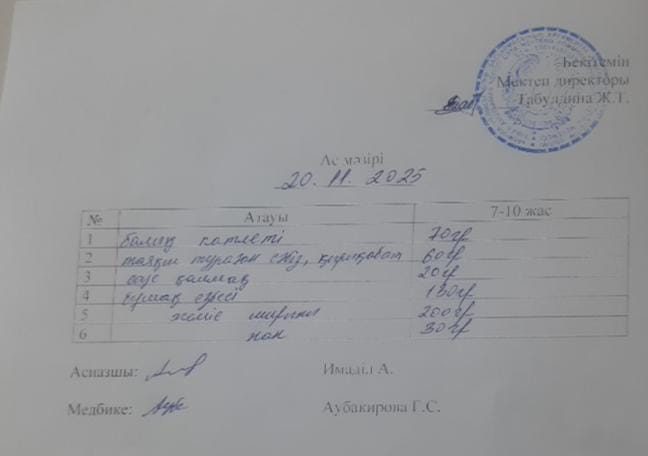 Бекітемін
Мектеп директоры
Табулдина Ж.Т.
Ас мәзірі
20. 11. 2025
№ Атауы 7-10 жас
1 балық котлеті 70гр
2 туралған сәбіз, қырыққабат 60гр
3 соус қаймақ 20гр
4 бұршақ езбесі 130гр
5 жеміс шырыны 200гр
6 нан 30гр
Аспазшы: Имаділ А.
Медбике: Аубакирова Г.С.